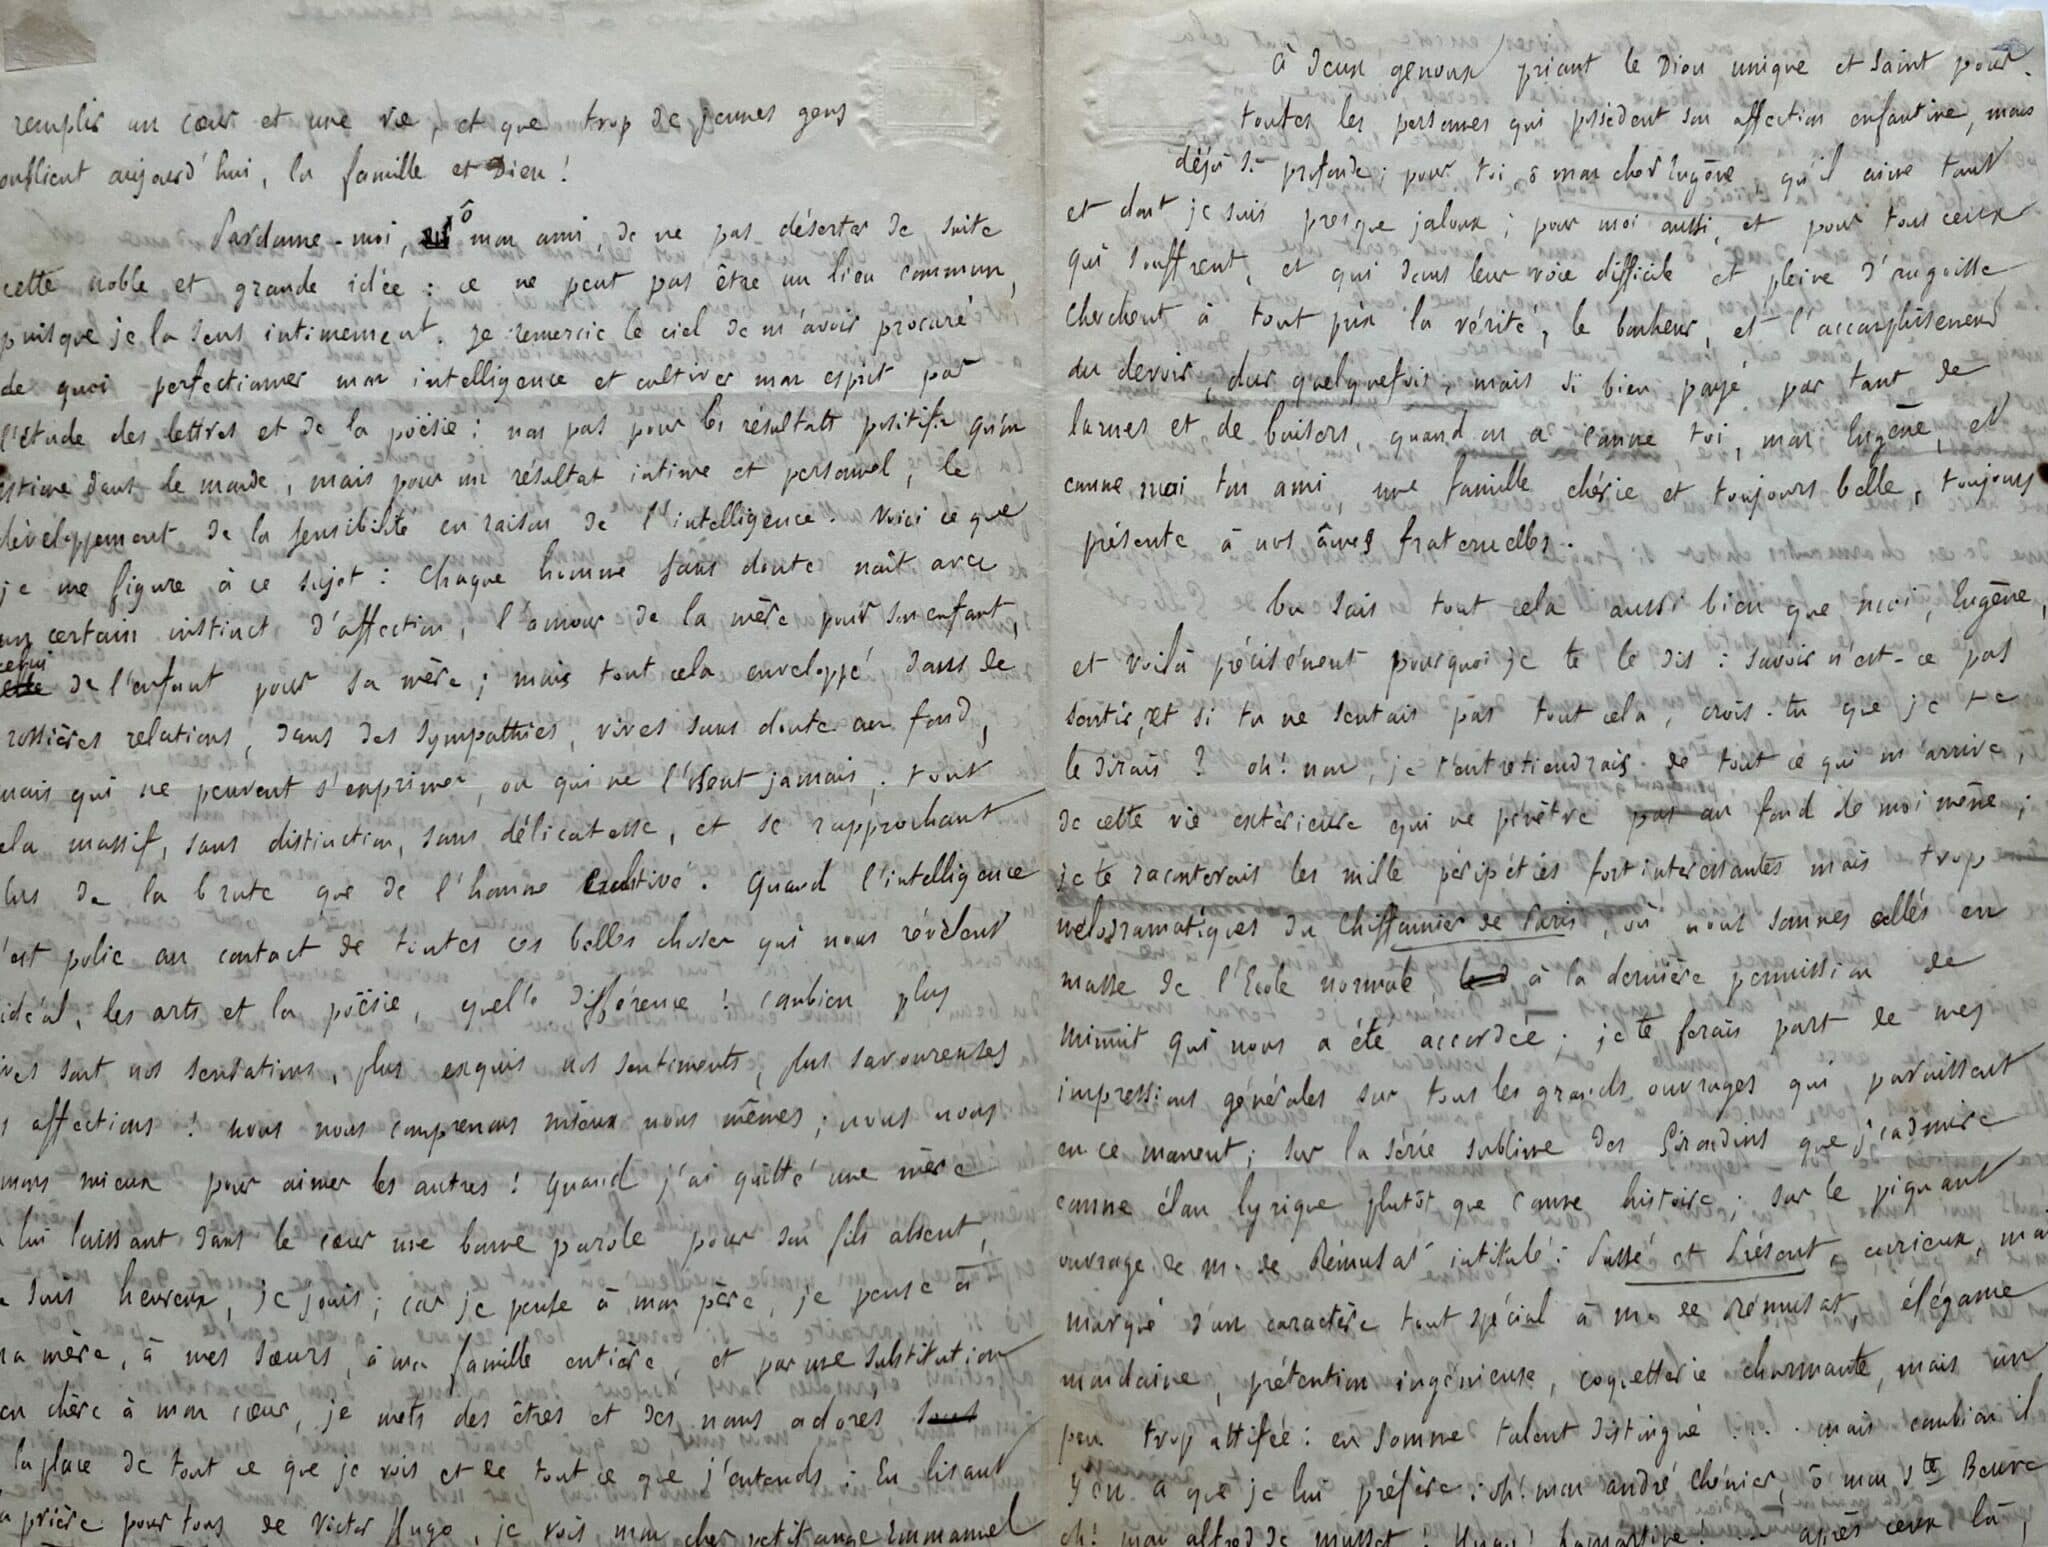 remplir un cœur et une vie, et que trop de jeunes gens
oublient aujourd'hui, la famille et Dieu !
Pardonne-moi, ô mon ami, de ne pas déserter de suite
cette noble et grande idée : ce ne peut pas être un lieu commun,
puisque je la sens intimement. Je remercie le ciel de m'avoir procuré
de quoi perfectionner mon intelligence et cultiver mon esprit par
l'étude des lettres et de la poësie : non pas pour les résultats positifs qu'on
estime dans le monde, mais pour un résultat intime et personnel, le
développement de la sensibilité en raison de l'intelligence. Voici ce que
je me figure à ce sujet : Chaque homme sans doute naît avec
un certain instinct d'affection, l'amour de la mère pour son enfant,
celui de l'enfant pour sa mère ; mais tout cela enveloppé dans de
rossières relations, dans des sympathies, vives sans doute au fond,
mais qui ne peuvent s'exprimer, ou qui ne l'osent jamais ; tout
ela massif, sans distinction, sans délicatesse, et se rapprochant
lus de la brute que de l'homme cultivé. Quand l'intelligence
s'est polie au contact de toutes ces belles choses qui nous révèlent
idéal, les arts et la poësie, quelle différence ! combien plus
ives sont nos sensations, plus exquis nos sentiments, plus savoureuses
s affections ! nous nous comprenons mieux nous mêmes ; nous nous
mons mieux pour aimer les autres ! Quand j'ai quitté une mère
lui laissant dans le cœur une bonne parole pour son fils absent,
suis heureux, je jouis ; car je pense à mon père, je pense à
ma mère, à mes sœurs, à ma famille entière, et par une substitution
en chère à mon cœur, je mets des êtres et des noms adorés
la place de tout ce que je vois et de tout ce que j'entends : En lisant
la prière pour tous de Victor Hugo, je vois mon cher petit ange Emmanuel
à deux genoux priant le Dieu unique et saint pour
toutes les personnes qui possèdent son affection enfantine, mais
déjà si profonde ; pour toi, ô mon cher Eugène, qu'il aime tant
et dont je suis presque jaloux ; pour moi aussi, et pour tous ceux
qui souffrent, et qui dans leur voie difficile et pleine d'angoisse
cherchent à tout prix la vérité, le bonheur, et l'accomplissement
du devoir, dur quelquefois, mais si bien payé par tant de
larmes et de baisers, quand on a comme toi, mon Eugène, et
comme moi ton ami, une famille chérie et toujours belle, toujours
présente à nos âmes fraternelles.
Tu sais tout cela aussi bien que moi, Eugène,
et voilà précisément pourquoi je te le dis : savoir n'est-ce pas
sentir, et si tu ne sentais pas tout cela, crois-tu que je te
le dirais ? oh ! non, je t'entretiendrais de tout ce qui m'arrive,
de cette vie extérieure qui ne pénètre pas au fond de moi même ;
je te raconterais les mille péripéties fort intéressantes mais trop
mélodramatiques du Chiffonnier de Paris, où nous sommes allés en
masse de l'Ecole normale, à la dernière permission de
minuit qui nous a été accordée ; je te ferais part de mes
impressions générales sur tous les grands ouvrages qui paraissent
en ce moment ; sur la série sublime des Girondins que j'admire
comme élan lyrique plutôt que comme histoire ; sur le piquant
ouvrage de M. de Rémusat intitulé : Passé et Présent, curieux, mais
marqué d'un caractère tout spécial à M. de Rémusat, élégance
mondaine, prétention ingénieuse, coquetterie charmante, mais un
peu trop attifée : en somme talent distingué . . . mais combien il
y en a que je lui préfère : oh ! mon andré Chénier, ô mon Ste Beuve
oh ! mon alfred de Musset ! Hugo ! Lamartine ! ... après ceux là,